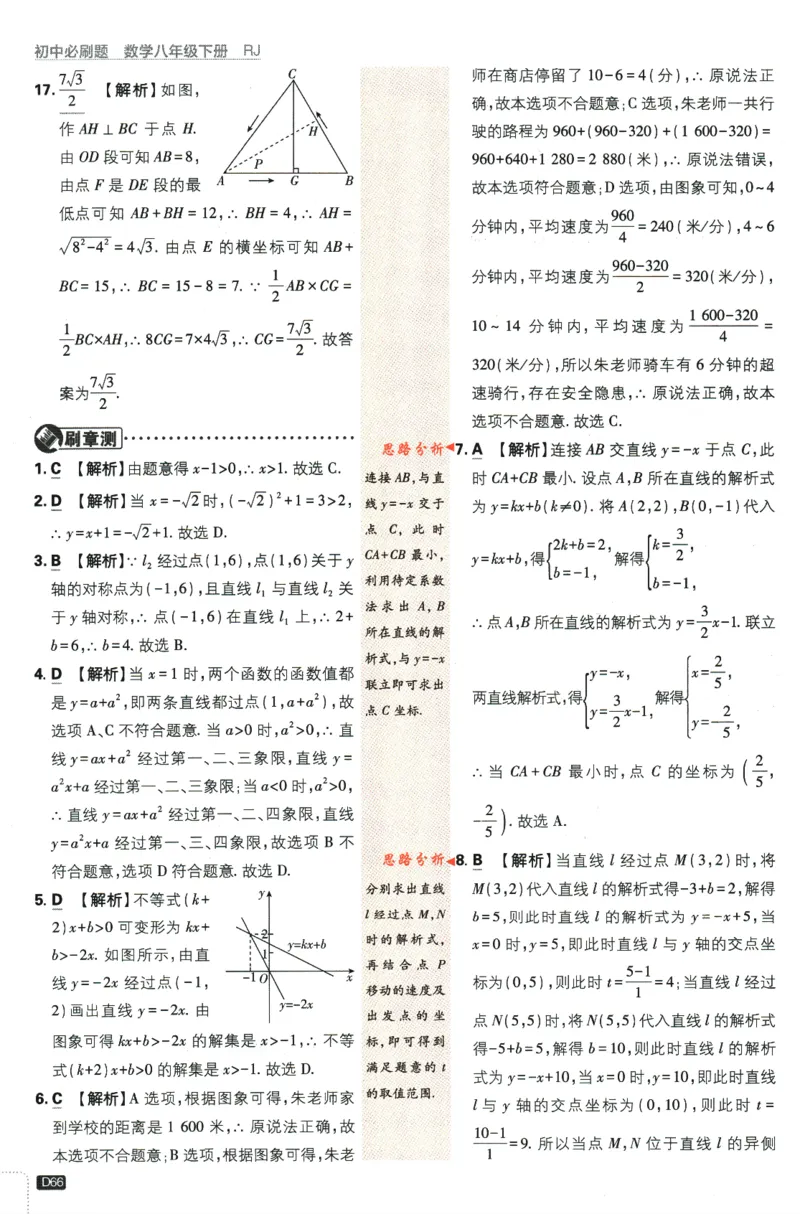 初中必刷题 数学八年级下册 RJ
17. 7√3/2 【解析】如图,
作 AH⊥BC 于点 H.
由 OD 段可知 AB=8,
由点 F 是 DE 段的最
低点可知 AB+BH=12,∴ BH=4,∴ AH=
√(8²-4²)=4√3. 由点 E 的横坐标可知 AB+
BC=15,∴ BC=15-8=7. ∵ 1/2 AB×CG=
1/2 BC×AH,∴ 8CG=7×4√3,∴ CG=7√3/2. 故答
案为 7√3/2.
C
H
P
A
G
B
刷章测
1. C 【解析】由题意得 x-1>0,∴ x>1. 故选 C.
2. D 【解析】当 x=-√2时,(-√2)²+1=3>2,
∴ y=x+1=-√2+1. 故选 D.
3. B 【解析】∵ l₂ 经过点(1,6),点(1,6)关于 y
轴的对称点为(-1,6),且直线 l₁ 与直线 l₂ 关
于 y 轴对称,∴ 点(-1,6)在直线 l₁ 上,∴ 2+
b=6,∴ b=4. 故选 B.
4. D 【解析】当 x=1 时,两个函数的函数值都
是 y=a+a²,即两条直线都过点(1,a+a²),故
选项 A、C 不符合题意. 当 a>0 时,a²>0,∴ 直
线 y=ax+a² 经过第一、二、三象限,直线 y=
a²x+a 经过第一、二、三象限;当 a<0 时,a²>0,
∴ 直线 y=ax+a² 经过第一、二、四象限,直线
y=a²x+a 经过第一、三、四象限,故选项 B 不
符合题意,选项 D 符合题意. 故选 D.
5. D 【解析】不等式(k+
2)x+b>0 可变形为 kx+
b>-2x. 如图所示,由直
线 y=-2x 经过点(-1,
2)画出直线 y=-2x. 由
图象可得 kx+b>-2x 的解集是 x>-1,∴ 不等
式(k+2)x+b>0 的解集是 x>-1. 故选 D.
y
2
y=kx+b
1
-1 O
x
y=-2x
6. C 【解析】A 选项,根据图象可得,朱老师家
到学校的距离是 1 600 米,∴ 原说法正确,故
本选项不合题意;B 选项,根据图象可得,朱老
D66
思路分析
连接 AB,与直
线 y=-x 交于
点 C,此时
CA+CB 最小,
利用待定系数
法求出 A,B
所在直线的解
析式,与 y=-x
联立即可求出
点 C 坐标.
思路分析
分别求出直线
l 经过点 M,N
时的解析式,
再结合点 P
移动的速度及
出发点的坐
标,即可得到
满足题意的 t
的取值范围.
师在商店停留了 10-6=4(分),∴ 原说法正
确,故本选项不合题意;C 选项,朱老师一共行
驶的路程为 960+(960-320)+(1 600-320)=
960+640+1 280=2 880(米),∴ 原说法错误,
故本选项符合题意;D 选项,由图象可知,0~4
分钟内,平均速度为 960/4=240(米/分),4~6
分钟内,平均速度为 (960-320)/2=320(米/分),
10~14 分钟内,平均速度为 (1 600-320)/4=
320(米/分),所以朱老师骑车有 6 分钟的超
速骑行,存在安全隐患,∴ 原说法正确,故本
选项不合题意. 故选 C.
7. A 【解析】连接 AB 交直线 y=-x 于点 C,此
时 CA+CB 最小. 设点 A,B 所在直线的解析式
为 y=kx+b(k≠0). 将 A(2,2),B(0,-1)代入
y=kx+b,得{2k+b=2, b=-1, 解得{k=3/2, b=-1,
∴ 点 A,B 所在直线的解析式为 y=3/2 x-1. 联立
两直线解析式,得{y=-x, y=3/2 x-1, 解得{x=2/5, y=-2/5,
∴ 当 CA+CB 最小时,点 C 的坐标为 (2/5,
-2/5). 故选 A.
8. B 【解析】当直线 l 经过点 M(3,2)时,将
M(3,2)代入直线 l 的解析式得-3+b=2,解得
b=5,则此时直线 l 的解析式为 y=-x+5,当
x=0 时,y=5,即此时直线 l 与 y 轴的交点坐
标为(0,5),则此时 t=(5-1)/1=4;当直线 l 经过
点 N(5,5)时,将 N(5,5)代入直线 l 的解析式
得-5+b=5,解得 b=10,则此时直线 l 的解析
式为 y=-x+10,当 x=0 时,y=10,即此时直线
l 与 y 轴的交点坐标为(0,10),则此时 t=
(10-1)/1=9. 所以当点 M,N 位于直线 l 的异侧